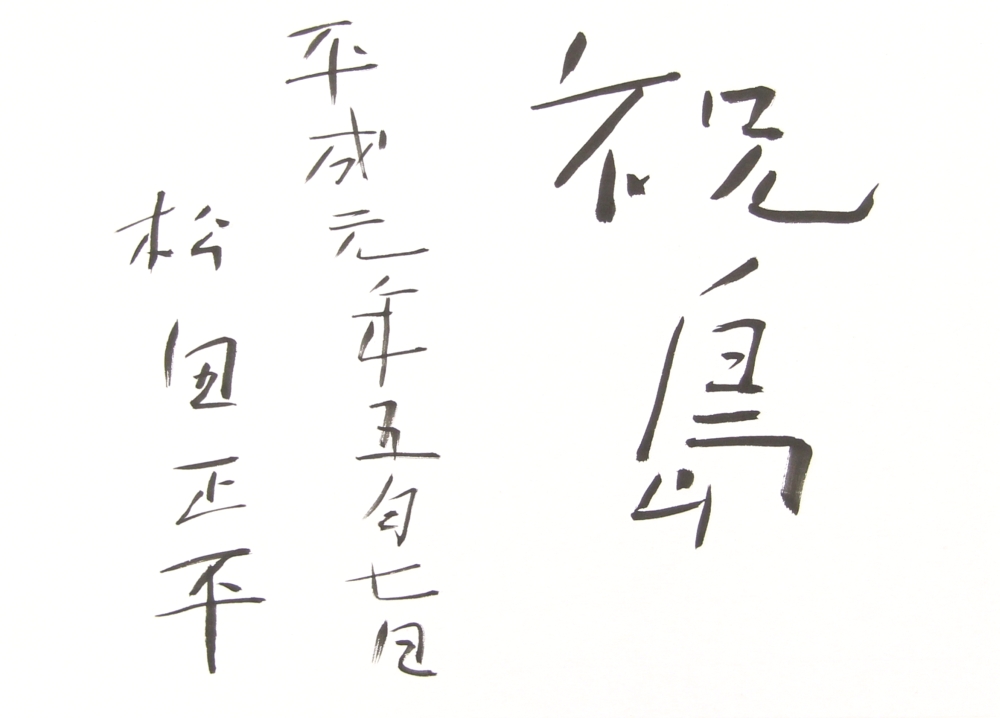 祝島
平成元年五月七日
松田正平